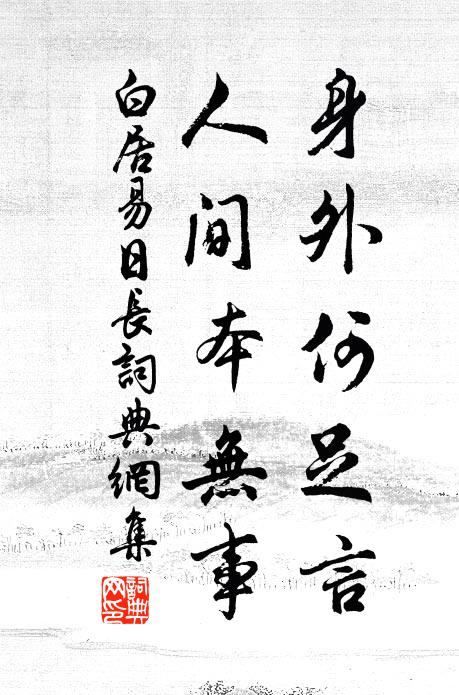 身外何足言
人间本無事
白居易日長詞典網集
詞典网印